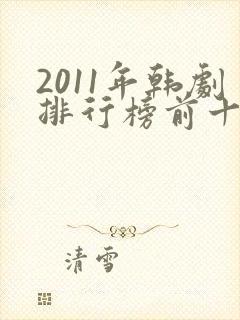 2011年韩劇
排行榜前十
清雪